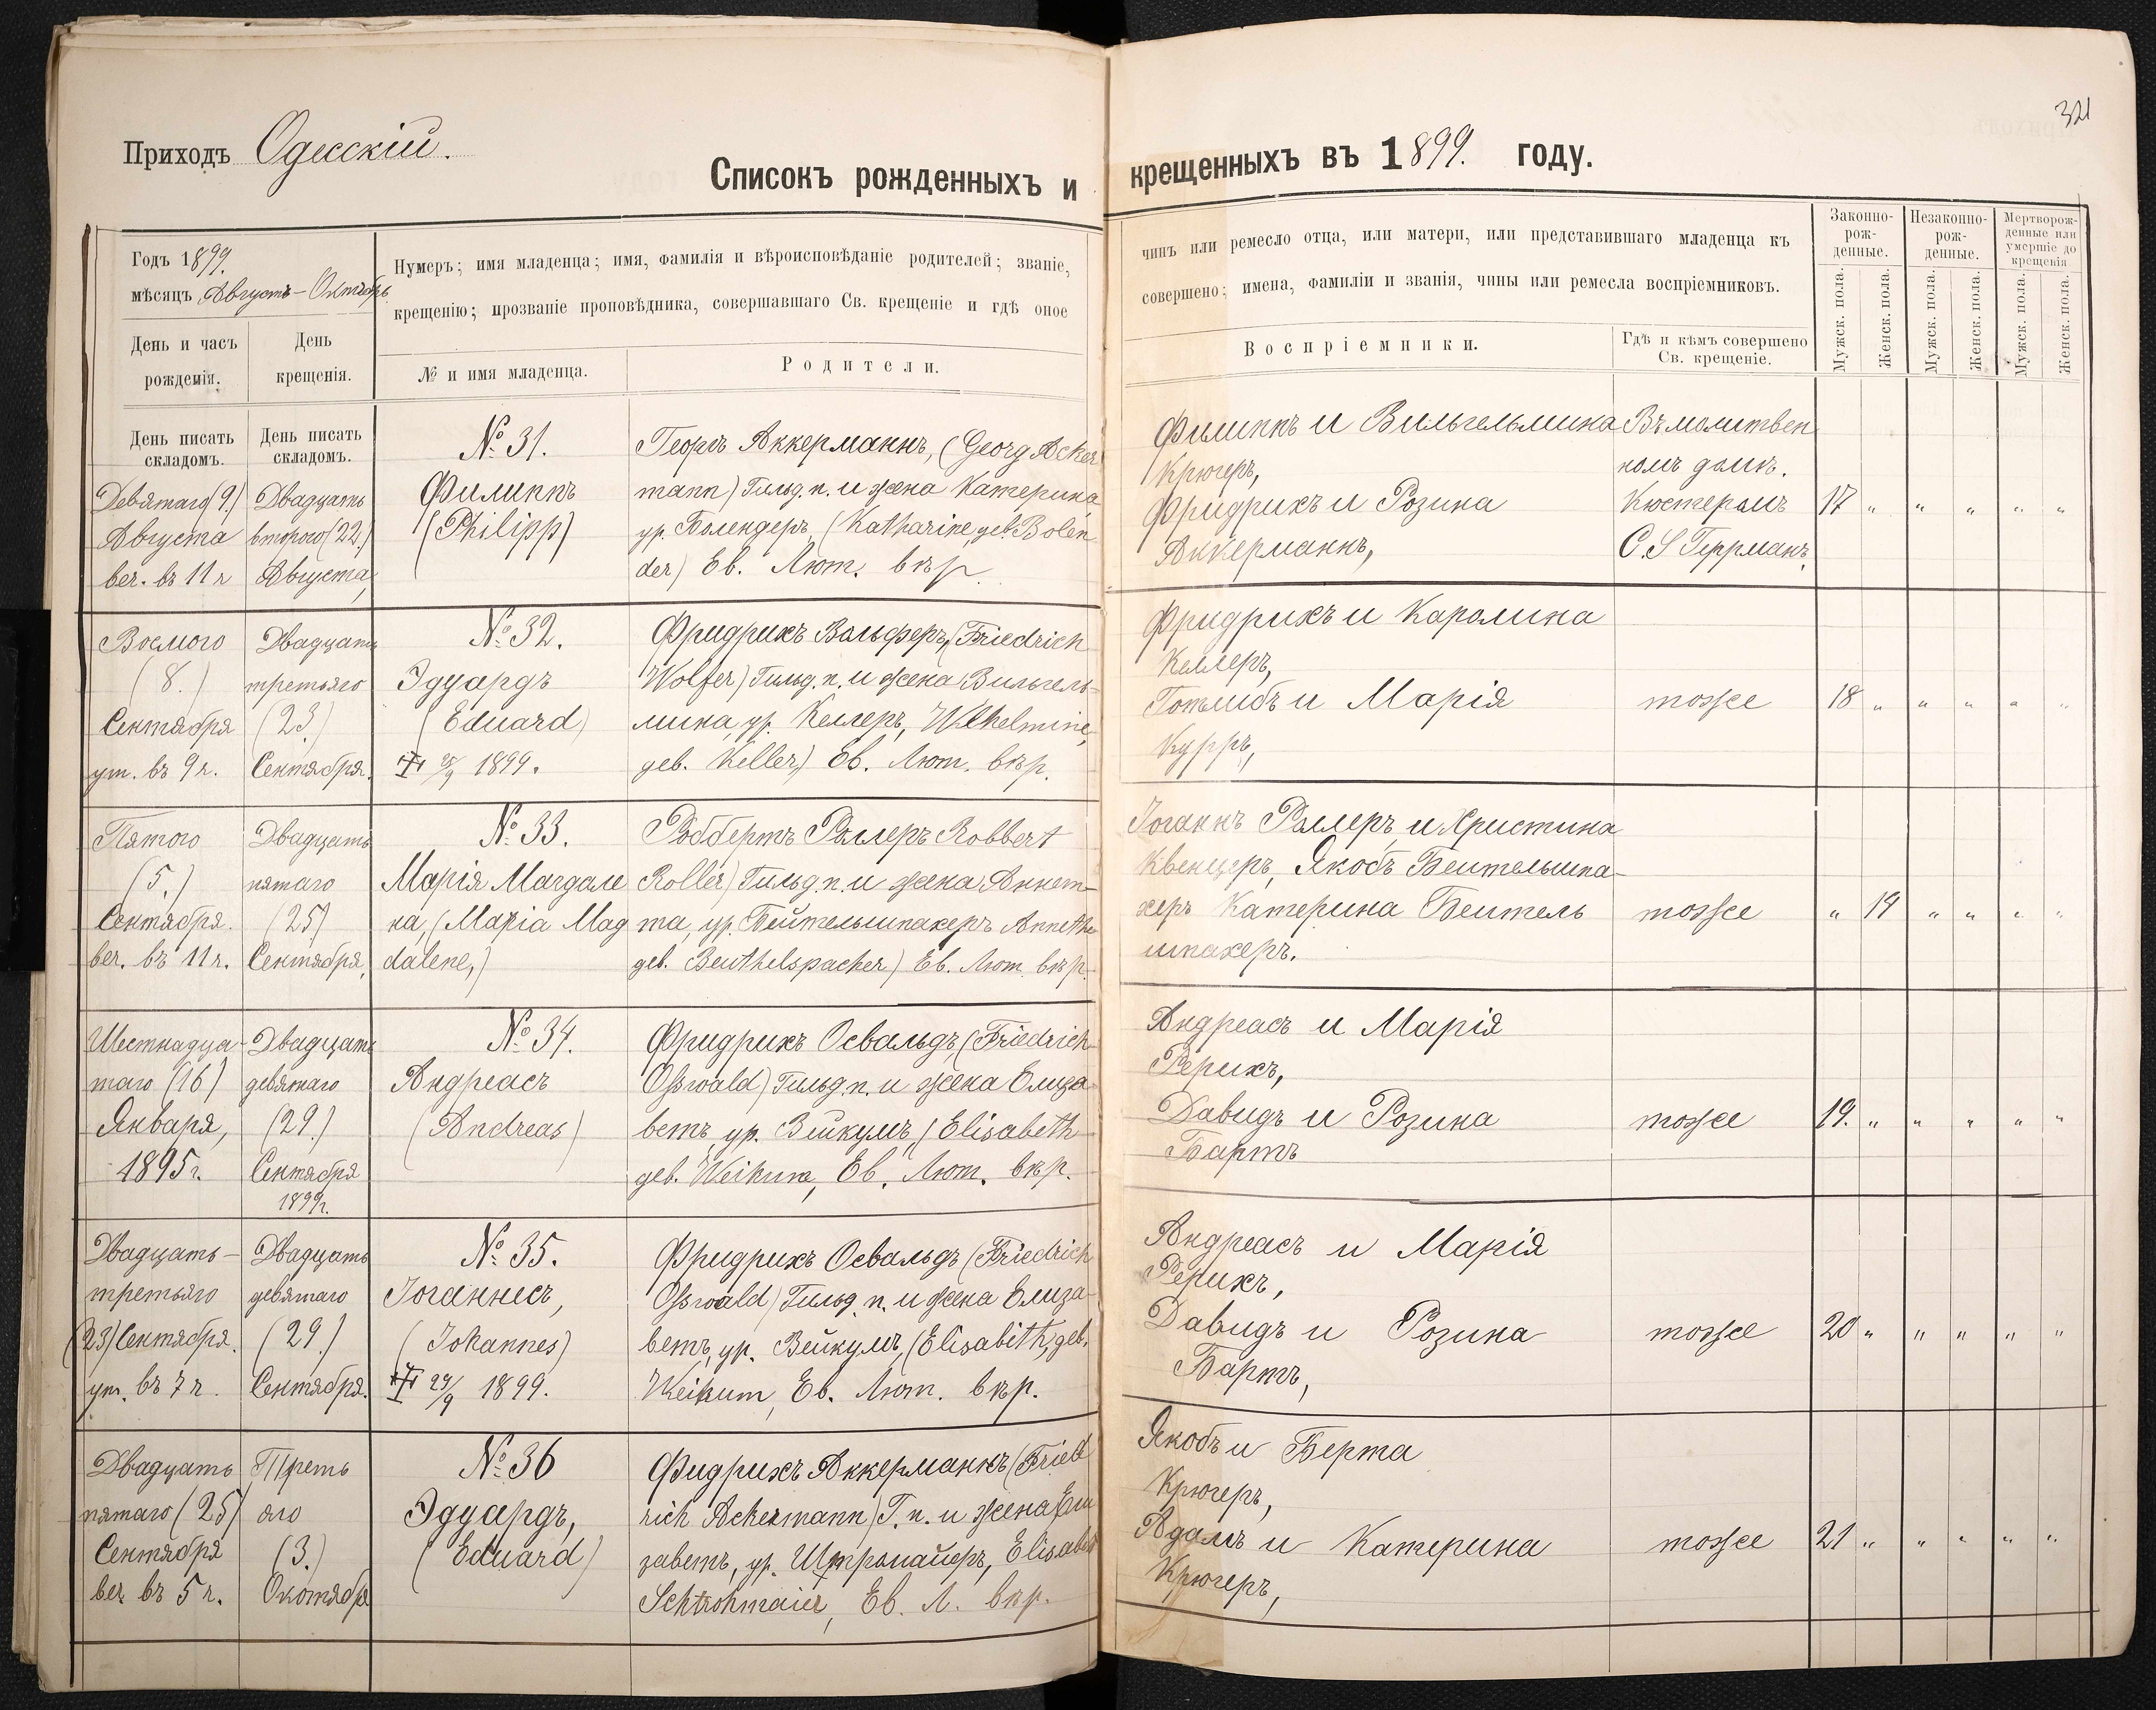 321
Приходъ Одесскій.
Списокъ рожденныхъ и крещенныхъ въ 1899. году.
Годъ 1899.
мѣсяцъ Августъ – Октябрь
День и часъ
рожденія.
День
крещенія.
Нумеръ; имя младенца; имя, фамилія и вѣроисповѣданіе родителей; званіе,
крещенію; прозваніе проповѣдника, совершавшаго Св. крещеніе и гдѣ оное
№ и имя младенца.
Родители.
чинъ или ремесло отца, или матери, или представившаго младенца къ
совершено; имена, фамиліи и званія, чины или ремесла воспріемниковъ.
Воспріемники.
Гдѣ и кѣмъ совершено
Св. крещеніе.
Законно-
рож-
денные.
Незаконно-
рож-
денные.
Мертворож-
денные или
умершіе до
крещенія.
Мужск. пола.
Женск. пола.
Мужск. пола.
Женск. пола.
Мужск. пола.
Женск. пола.
День писать
складомъ.
День писать
складомъ.
Девятаго (9.)
Августа
веч. въ 11 ч
Двадцать
второго (22.)
Августа,
№ 31.
Филиппъ
(Philipp)
Георгъ Аккерманнъ, (Georg Acker
mann) Гильд. п. и жена Катерина
ур. Болендеръ, (Katharine, geb. Bolen
der) Ев. Лют. вѣр.
Филиппъ и Вильгельмина
Крюгеръ,
Фридрихъ и Розина
Аккерманнъ,
Въ молитвен
номъ домѣ.
Кюстеромъ
С. S Геррманъ.
17 " " " " "
Восмого
(8.)
Сентября
ут. въ 9 ч.
Двадцать
третьяго
(23.)
Сентября.
№ 32.
Эдуардъ
(Eduard)
1899.
Фридрихъ Вольферъ, (Friedrich
Wolfer) Гильд. п. и жена Вильгель-
мина, ур. Келлеръ, Wilhelmine,
geb. Keller) Ев. Лют. вѣр.
Фридрихъ и Каролина
Келлеръ,
Готлибъ и Марія
Курръ,
тоже
18 " " " " "
Пятого
(5.)
Сентября.
веч. въ 11 ч.
Двадцать
пятаго
(25)
Сентября,
№ 33.
Марія Магдале
на, (Maria Mag
dalene,)
Робберть Роллеръ Robbert
Roller) Гильд. п. и жена Аннет-
та, ур. Бейтельшпахеръ Annethe
geb. Beuthelspacher) Ев. Лют. вѣр.
Іоганнъ Роллеръ и Христина
Квенцеръ, Якобъ Беительшпа-
херъ Катерина Беитель
шпахеръ.
тоже
" 19 " " " "
Шестнадца-
таго (16)
Января,
1895 г.
Двадцать
девятаго
(29.)
Сентября
1899 г.
№ 34.
Андреасъ
(Andreas)
Фридрихъ Освальдъ, (Friedrich
Oßwald) Гильд. п. и жена Елиза
бетъ, ур. Вейкумъ, (Elisabeth
geb. Weikum, Ев. Лют. вѣр.
Андреасъ и Марія
Рерихъ,
Давидъ и Розина
Бартъ
тоже
19. " " " " "
Двадцать-
третьяго
(23) Сентября.
ут. въ 7 ч.
Двадцать
девятаго
(29.)
Сентября.
№ 35.
Іоганнесъ,
(Johannes)
29/9 1899.
Фридрихъ Освальдъ (Friedrich
Oßwald) Гильд. п. и жена Елиза-
бетъ, ур. Вейкумъ, (Elisabith, geb.
Weikum, Ев. Лют. вѣр.
Андреасъ и Марія
Рерихъ,
Давидъ и Розина
Бартъ,
тоже
20 " " " " "
Двадцать
пятаго (25)
Сентября
веч. въ 5 ч.
Треть
яго
(3.)
Окотября
№ 36
Эдуардъ,
(Eduard)
Фидрихъ Аккерманнъ (Fried
rich Ackermann) Г. п. и жена Ели
заветъ, ур. Штромайеръ, Elisabet
Schtrohmaier, Ев. Л. вѣр.
Якобъ и Берта
Крюгеръ,
Адамъ и Катерина
Крюгеръ,
тоже
21 " " " " "